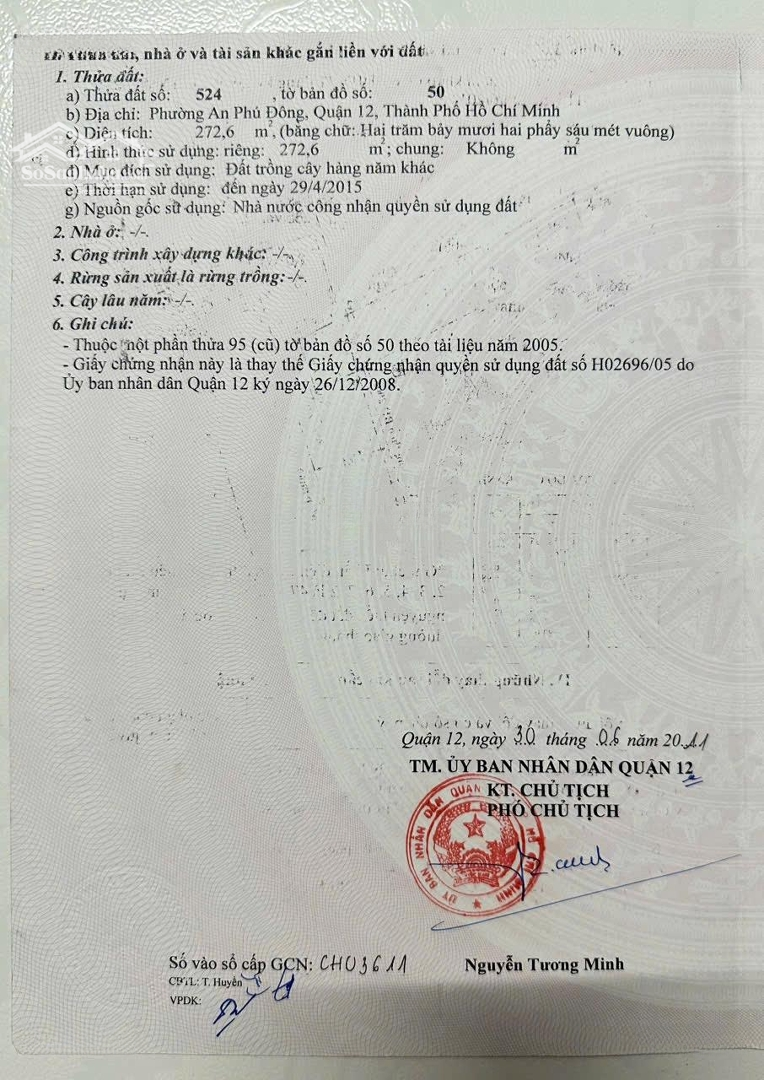 , nhà ở và tài sản khác gắn liền với đất
1. Thửa đất:
a) Thửa đất số: 524 , tờ bản đồ số: 50
b) Địa chỉ: Phường An Phú Đông, Quận 12, Thành Phố Hồ Chí Minh
c) Diện tích: 272,6 m², (bằng chữ: Hai trăm bảy mươi hai phẩy sáu mét vuông)
d) Hình thức sử dụng: riêng: 272,6 m²; chung: Không m²
đ) Mục đích sử dụng: Đất trồng cây hàng năm khác
e) Thời hạn sử dụng: đến ngày 29/4/2015
g) Nguồn gốc sử dụng: Nhà nước công nhận quyền sử dụng đất
2. Nhà ở: -/-.
3. Công trình xây dựng khác: -/-.
4. Rừng sản xuất là rừng trồng: -/-.
5. Cây lâu năm: -/-.
6. Ghi chú:
- Thuộc một phần thửa 95 (cũ) tờ bản đồ số 50 theo tài liệu năm 2005.
- Giấy chứng nhận này là thay thế Giấy chứng nhận quyền sử dụng đất số H02696/05 do
Ủy ban nhân dân Quận 12 ký ngày 26/12/2008.
Quận 12, ngày 30 tháng 06 năm 2011
TM. ỦY BAN NHÂN DÂN QUẬN 12
KT. CHỦ TỊCH
PHÓ CHỦ TỊCH
ỦY BAN NHÂN DÂN QUẬN
Số vào sổ cấp GCN: CH03611 Nguyễn Tương Minh
CBTL: T. Huyền
VPDK: